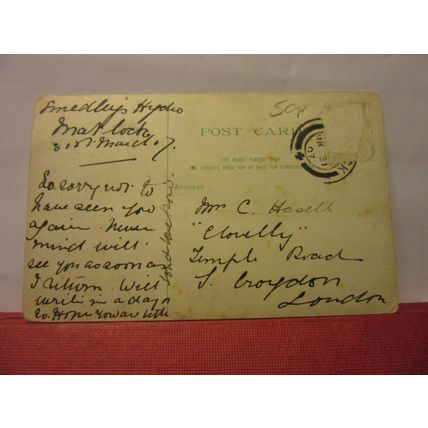 Smedley's Hydro
Matlock
31st March 07.
So sorry not to
have seen you
again. Never
mind will
see you as soon as
I return. Will
write in a day or
so. Hope you are better
Good love
50p
POST CARD
FOR INLAND POSTAGE ONLY
ADDRESS
Mrs C. Hasell
"Clovelly"
Temple Road
S. Croydon
London
MR 31
07
CK